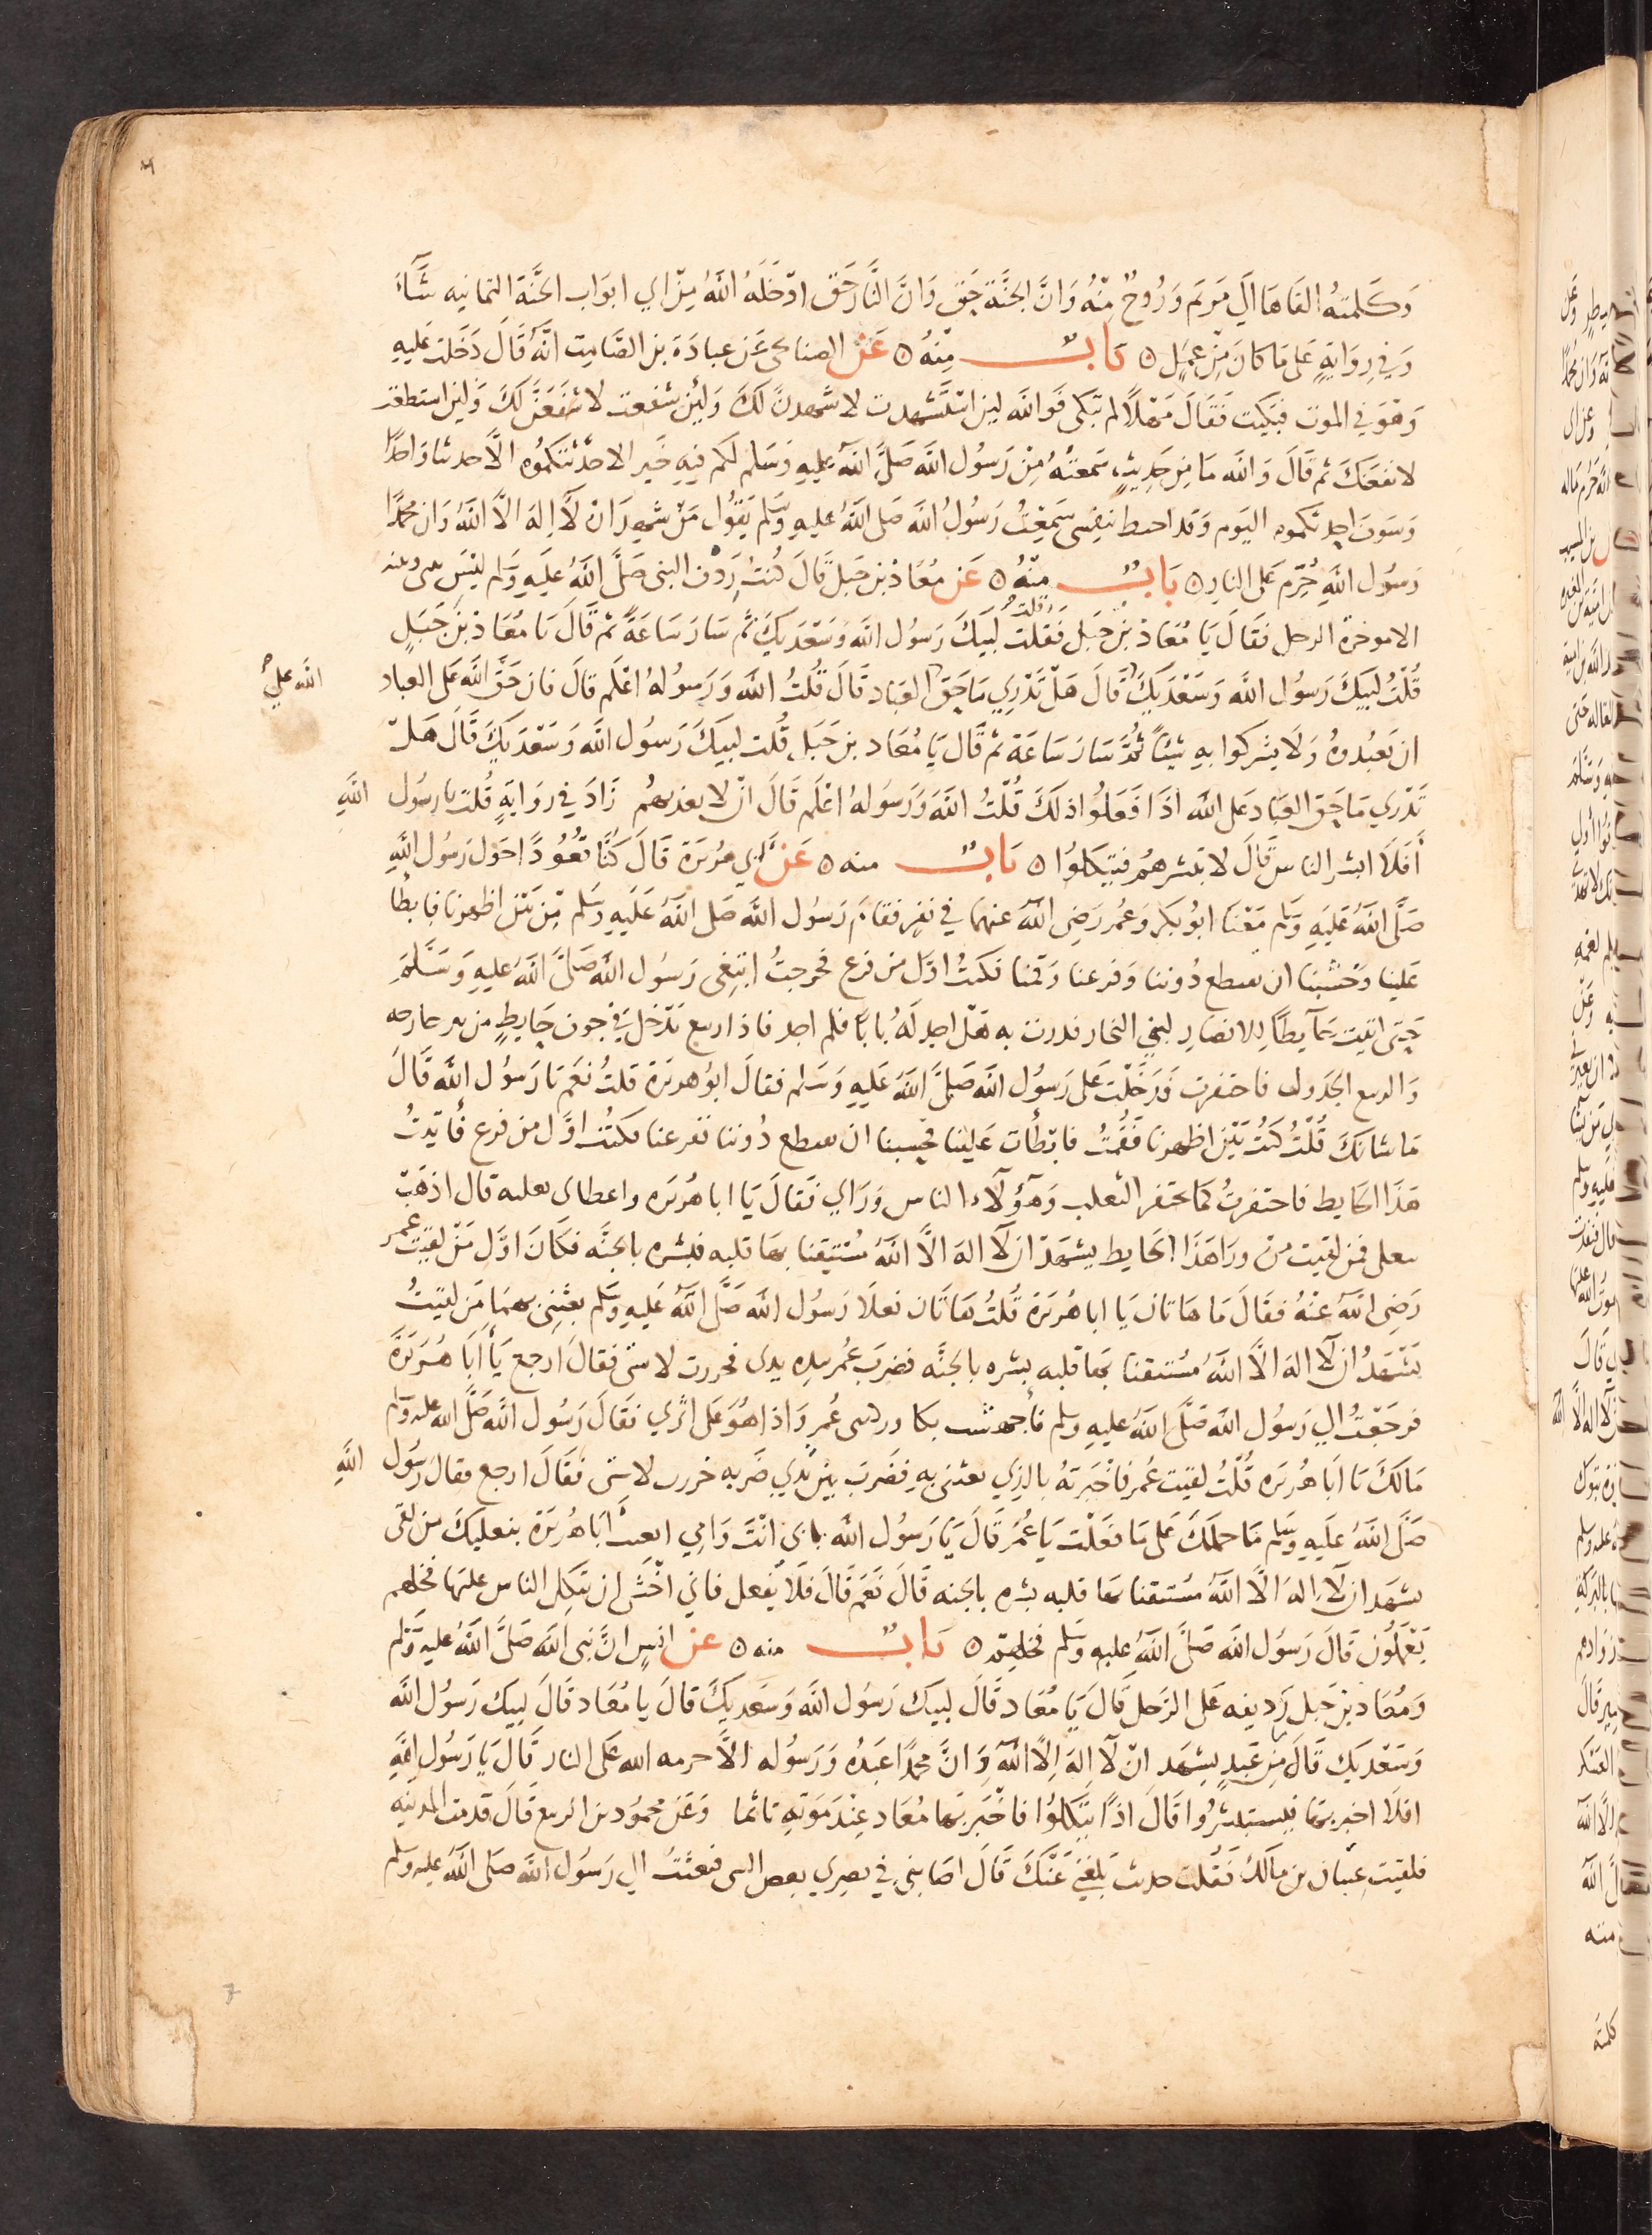 وكلمته القاها الي مريم وروح منه وان الجنة حق وان النار حق ادخله الله من اي ابواب الجنة الثمانيه شاء
وفي رواية على ما كان من عمل ه باب منه ه عن الصنابحي عن عبادة بن الصامت انه قال دخلت عليه
وهو في الموت فبكيت فقال مهلا لم تبكي فوالله لين استشهدت لاشهدن لك ولئن شفعت لاشفعن لك ولئن استطعت
لانفعنك ثم قال والله ما من حديث سمعته من رسول الله صلى الله عليه وسلم لكم فيه خير الا حدثتكموه الا حديثا واحدا
وسوف احدثكموه اليوم وقد احيط بنفسي سمعت رسول الله صلى الله عليه وسلم يقول من شهد ان لا اله الا الله وان محمدا
رسول الله حرم على النار ه باب منه ه عن معاذ بن جبل قال كنت ردف النبي صلى الله عليه وسلم ليس بيني وبينه
الا موخرة الرحل فقال يا معاذ بن جبل فقلت لبيك رسول الله وسعديك ثم سار ساعة ثم قال يا معاذ بن جبل
قلت لبيك رسول الله وسعديك قال هل تدري ما حق العباد قال قلت الله ورسوله اعلم قال فان حق الله على العباد
الله على
ان يعبدوه ولا يشركوا به شيئا ثم سار ساعة ثم قال يا معاذ بن جبل قلت لبيك رسول الله وسعديك قال هل
تدري ما حق العباد على الله اذا فعلوا ذلك قلت الله ورسوله اعلم قال ان لا يعذبهم زاد في رواية قلت يا رسول الله
أفلا ابشر الناس قال لا تبشرهم فيتكلوا ه باب منه ه عن ابي هريرة قال كنا قعودا حول رسول الله
صلى الله عليه وسلم معنا ابو بكر وعمر رضى الله عنهما في نفر فقام رسول الله صلى الله عليه وسلم من بين اظهرنا فابطا
علينا وخشينا ان يقتطع دوننا وفزعنا وقمنا فكنت اول من فزع فخرجت ابتغى رسول الله صلى الله عليه وسلم
حتى اتيت حآيطا للانصار لبني النجار فدرت به هل اجد له بابا فلم اجد فاذا ربيع يدخل في جوف حايط من بير خارجه
والربيع الجدول فاحتفرت فدخلت على رسول الله صلى الله عليه وسلم فقال ابو هريرة قلت نعم يا رسول الله قال
ما شانك قلت كنت بين اظهرنا فقمت فابطأت علينا فخشينا ان يقتطع دوننا ففزعنا فكنت اول من فزع فأتيت
هذا الحايط فاحتفرت كما يحتفز الثعلب وهؤلاء الناس وراي فقال يا ابا هريره واعطاني نعليه قال اذهب
بنعلي فمن لقيت من ورا هذا الحايط يشهد ان لا اله الا الله مستيقنا بها قلبه فبشره بالجنه فكان اول من لقيت عمر
رضى الله عنه فقال ما هاتان يا ابا هريرة قلت هاتان نعلا رسول الله صلى الله عليه وسلم بعثني بهما من لقيت
يشهد ان لا اله الا الله مستيقنا بها قلبه بشره بالجنه فضرب عمر بيده بين يدي فخررت لاستي فقال ارجع يا أبا هريرة
فرجعت الي رسول الله صلى الله عليه وسلم فأجهشت بكا وركبني عمر واذا هو على اثري فقال رسول الله صلى الله عليه وسلم
مالك يا ابا هريره قلت لقيت عمر فاخبرته بالذي بعثتني به فضرب بين يدي ضربه خررت لاستي فقال ارجع فقال رسول الله
صلى الله عليه وسلم ما حملك على ما فعلت يا عمر قال يا رسول الله بابي انت وامي ابعثت أبا هريرة بنعليك من لقى
يشهد ان لا اله الا الله مستيقنا بها قلبه بشره بالجنه قال نعم قال فلا يفعل فاني اخشى ان يتكل الناس عليها فخلهم
يعملون قال رسول الله صلى الله عليه وسلم فخلهم ه باب منه ه عن انس ان نبي الله صلى الله عليه وسلم
ومعاذ بن جبل رديفه على الرحل قال يا معاذ قال لبيك رسول الله وسعديك قال يا معاذ قال لبيك رسول الله
وسعديك قال ما من عبد يشهد ان لا اله الا الله وان محمدا عبده ورسوله الا حرمه الله على النار قال يا رسول الله
افلا اخبر بها فيستبشروا قال اذا يتكلوا فاخبر بها معاذ عند موته تاثما وعن محمود بن الربيع قال قدمت المدينه
فلقيت عتبان بن مالك فقلت حديث بلغني عنك قال اصابني في بصري بعض الشي فبعثت الي رسول الله صلى الله عليه وسلم